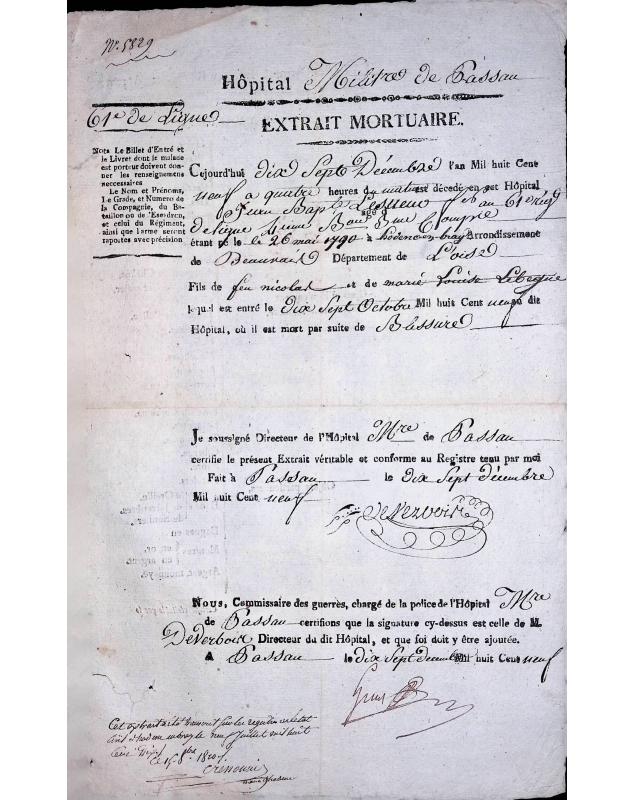 N.º 5829
Hôpital Militre de Passau
61e de Ligne
EXTRAIT MORTUAIRE.
Nota Le Billet d'Entré et
le Livret dont le malade
est porteur doivent don-
ner les renseignemens
necessaires
Le Nom et Prénoms,
Le Grade, et Numero de
la Compagnie, du Ba-
taillon ou de l'Escadron,
et celui du Régiment,
ainsi que l'arme seront
raportes avec précision
Cejourd'hui dix Sept Décembre l'an Mil huit Cent
neuf a quatre heures du matin est décedé en cet Hôpital
Jean Bapte Lesueur agé au 61e Rég
de ligne 4eme Bon 3me Compnie
étant né le le 26 mai 1790 à hodenc en bray Arrondissement
de Beauvais Département de L'oise
Fils de feu nicolas et de marie Louise Lebegue
lequel est entré le dix Sept Octobre Mil huit Cent neuf au dit
Hôpital, où il est mort par suite de Blessures
Je soussigné Directeur de l'Hôpital Mre de Passau
certifie le présent Extrait véritable et conforme au Registre tenu par moi
Fait à Passau le dix Sept décembre
Mil huit Cent neuf
DeVerboir
Nous, Commissaire des guerrès, chargé de la police de l'Hôpital Mre
de Passau certifions que la signature cy-dessus est celle de M.
DeVerboir Directeur du dit Hôpital, et que foi doit y être ajoutée.
A Passau le dix Sept decembre Mil huit Cent neuf
Cet extrait a été transcrit sur les registres de l'état
civil d'hodenc en bray le juillet mil huit
cent